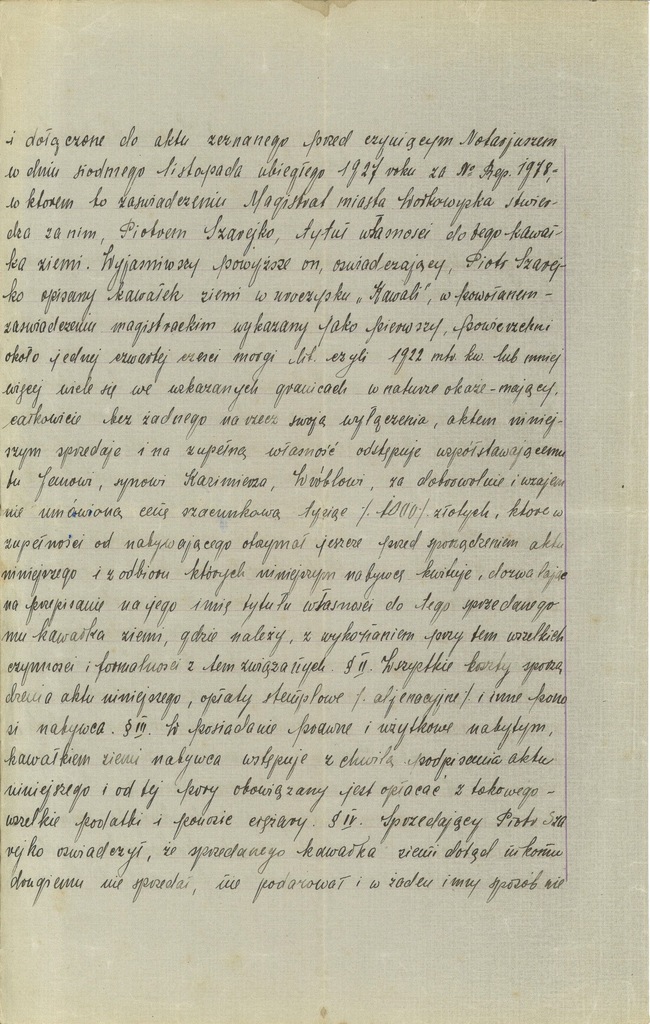 i dołączone do aktu zeznanego przed czyniącym Notarjuszem
w dniu siódmego listopada ubiegłego 1927 roku za No Rep. 1978,-
w którem to zaświadczeniu Magistrat miasta Wołkowyska stwier-
dza za nim, Piotrem Szarejko, tytuł własności do tego kawał-
ka ziemi. Wyjaśniwszy powyższe on, oświadczający, Piotr Szarej-
ko opisany kawałek ziemi w uroczysku „Kawali", w powołanem-
zaświadczeniu magistrackim wykazany jako pierwszy, powierzchni
około jednej czwartej części morgi lit. czyli 1922 mtr. kw. lub mniej
więcej wiele się we wskazanych granicach w naturze okaże-mający,
całkowicie bez żadnego na rzecz swoją wyłączenia, aktem niniej-
szym sprzedaje i na zupełną własność odstępuje współstawającemu
tu Janowi, synowi Kazimierza, Wróblowi, za dobrowolnie i wzajem
nie umówioną cenę szacunkową tysiąc /. 1000/. złotych, które w
zupełności od nabywającego otrzymał jeszcze przed sporządzeniem aktu
niniejszego i z odbioru których niniejszym nabywcę kwituje, dozwalając
na przepisanie na jego imię tytułu własności do tego sprzedanego
mu kawałka ziemi, gdzie należy, z wykonaniem przy tem wszelkich
czynności i formalności z tem związanych. § II. Wszystkie koszty sporzą
dzenia aktu niniejszego, opłaty stemplowe /. aljenacyjne/. i inne pono
si nabywca. § III. W posiadanie prawne i użytkowe nabytym,
kawałkiem ziemi nabywca wstępuje z chwilą podpisania aktu
niniejszego i od tej pory obowiązany jest opłacać z takowego-
wszelkie podatki i ponosić ciężary. § IV. Sprzedający Piotr Sza
rejko oświadczył, że sprzedanego kawałka ziemi dotąd nikomu
drugiemu nie sprzedał, nie podarował i w żaden inny sposób nie